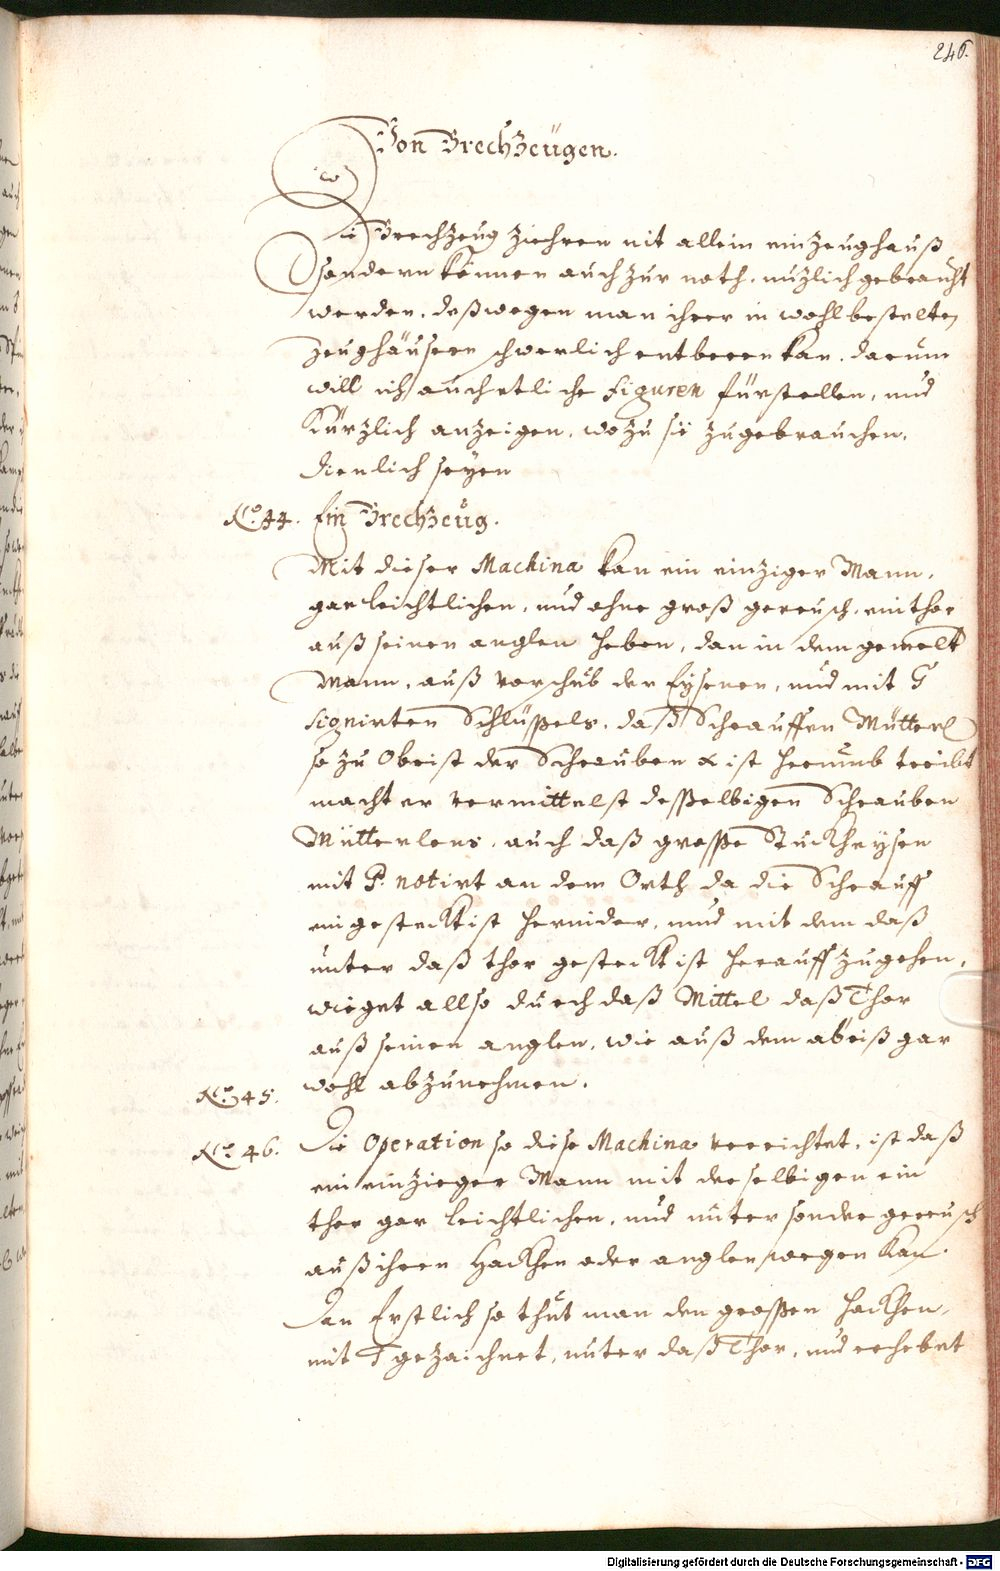 246.
Von BrechZeügen.
Die Brechzeug ziehren nit allein ein Zeughauß
sondern können auch zur noth, nuzlich gebraucht
werden, deßwegen man ihrer in wohl bestelten
Zeughäusern schwerlich entberen kan, darumb
will ich auch etliche Figuren fürstellen, und
Kürzlich anzeigen, wozu sie zugebrauchen,
dienlich seyen
No. 44. Ein BrechZeüg.
Mit dieser Machina kan ein einziger Mann,
gar leichtlichen, und ohne groß gereusch, ein thor
auß seinen anglen heben, dan in dem gemelt
Mann, auß vorschub der Eysenen, und mit G
signirten Schlüßels, daß Schrauffen Mütterl
so zu Obrist der Schrauben α ist herumb treibt
macht er vermittelst desselbigen Schrauben
Mütterlens, auch daß grosse Stuckh eysen
mit P. notirt an dem Orth da die Schrauff
eingesteckt ist hernider, und mit dem daß
unter daß thor gesteckt ist herauff zugehen,
wieget allso durch daß Mittel daß Thor
auß seinen anglen, wie auß dem abriß gar
wohl abzunehmen.
No. 45.
No. 46. Die Operation so diese Machina verrichtet, ist daß
ein einzieger Mann mit derselbigen ein
thor gar leichtlichen, und unter sondre gereusch
auß ihren Hackhen oder anglen wegen Kan.
Dan Erstlich so thut man den grossen Hackhen,
mit T gezaichnet, unter daß Thor, und erhebet
Digitalisierung gefördert durch die Deutsche Forschungsgemeinschaft - DFG